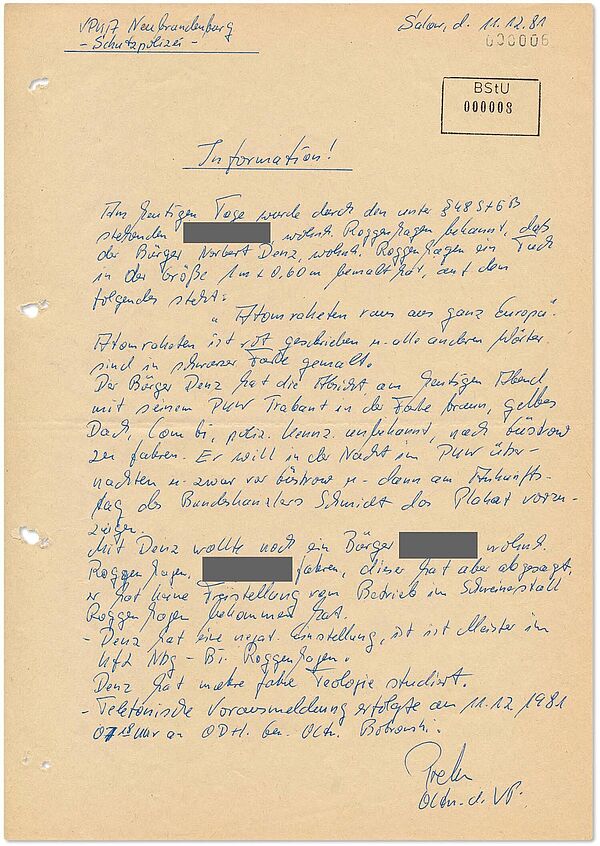 VPKA Neubrandenburg
- Schutzpolizei -
Salow, d. 11.12.81
000006
BStU
000008
Information!
Am heutigen Tage wurde durch den unter § 48 StGB
stehenden , wohnh. Roggenhagen bekannt, daß
der Bürger Norbert Denz, wohnh. Roggenhagen ein Tuch
in der Größe 1m x 0,60m bemalt hat, auf dem
folgendes steht:
„Atomraketen raus aus ganz Europa“
Atomraketen ist rot geschrieben u. alle anderen Wörter
sind in schwarzer Farbe gemalt.
Der Bürger Denz hat die Absicht am heutigen Abend
mit seinem PKW Trabant in der Farbe braun, gelbes
Dach, Combi, poliz. Kennz. unbekannt, nach Güstrow
zu fahren. Er will in der Nacht im PKW über-
nachten u. zwar vor Güstrow u. dann am Ankunfts-
tag des Bundeskanzlers Schmidt das Plakat vorzu-
zeigen.
Mit Denz wollte noch ein Bürger wohnh.
Roggenhagen, fahren, dieser hat aber abgesagt,
er hat keine Freistellung vom Betrieb im Schweinestall
Roggenhagen bekommen hat.
- Denz hat eine negat. Einstellung, ist ist Meister im
KfL Nbg - Bt. Roggenhagen.
Denz hat mehre Jahre Teologie studiert.
- Telefonische Vorausmeldung erfolgte am 11.12.1981
Uhr an ODH. Gen. Obltn. Bobrowski.
Obltn. d. VP.